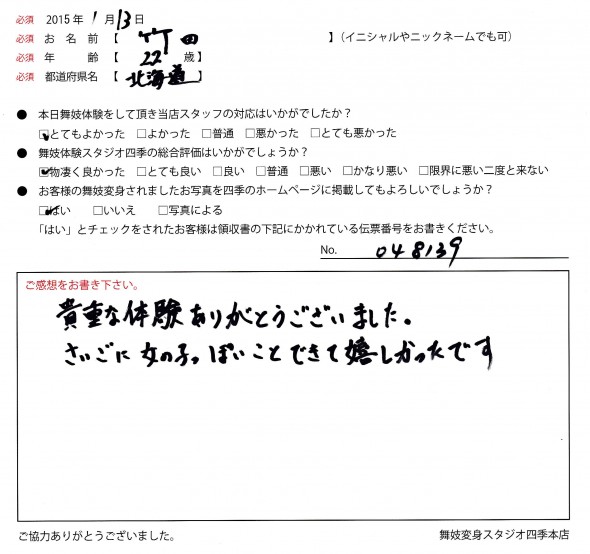 必須 2015年 1月 13日
必須 お名前【 竹田 】(イニシャルやニックネームでも可)
必須 年齢【 22 歳】
必須 都道府県名【 北海道 】
● 本日舞妓体験をして頂き当店スタッフの対応はいかがでしたか?
☑とてもよかった □よかった □普通 □悪かった □とても悪かった
● 舞妓体験スタジオ四季の総合評価はいかがでしょうか?
☑物凄く良かった □とても良い □良い □普通 □悪い □かなり悪い □限界に悪い二度と来ない
● お客様の舞妓変身されましたお写真を四季のホームページに掲載してもよろしいでしょうか?
☑はい □いいえ □写真による
「はい」とチェックをされたお客様は領収書の下記にかかれている伝票番号をお書きください。
No. 048139
ご感想をお書き下さい。
貴重な体験ありがとうございました。
さいごに女の子っぽいことできて嬉しかったです
ご協力ありがとうございました。 舞妓変身スタジオ四季本店